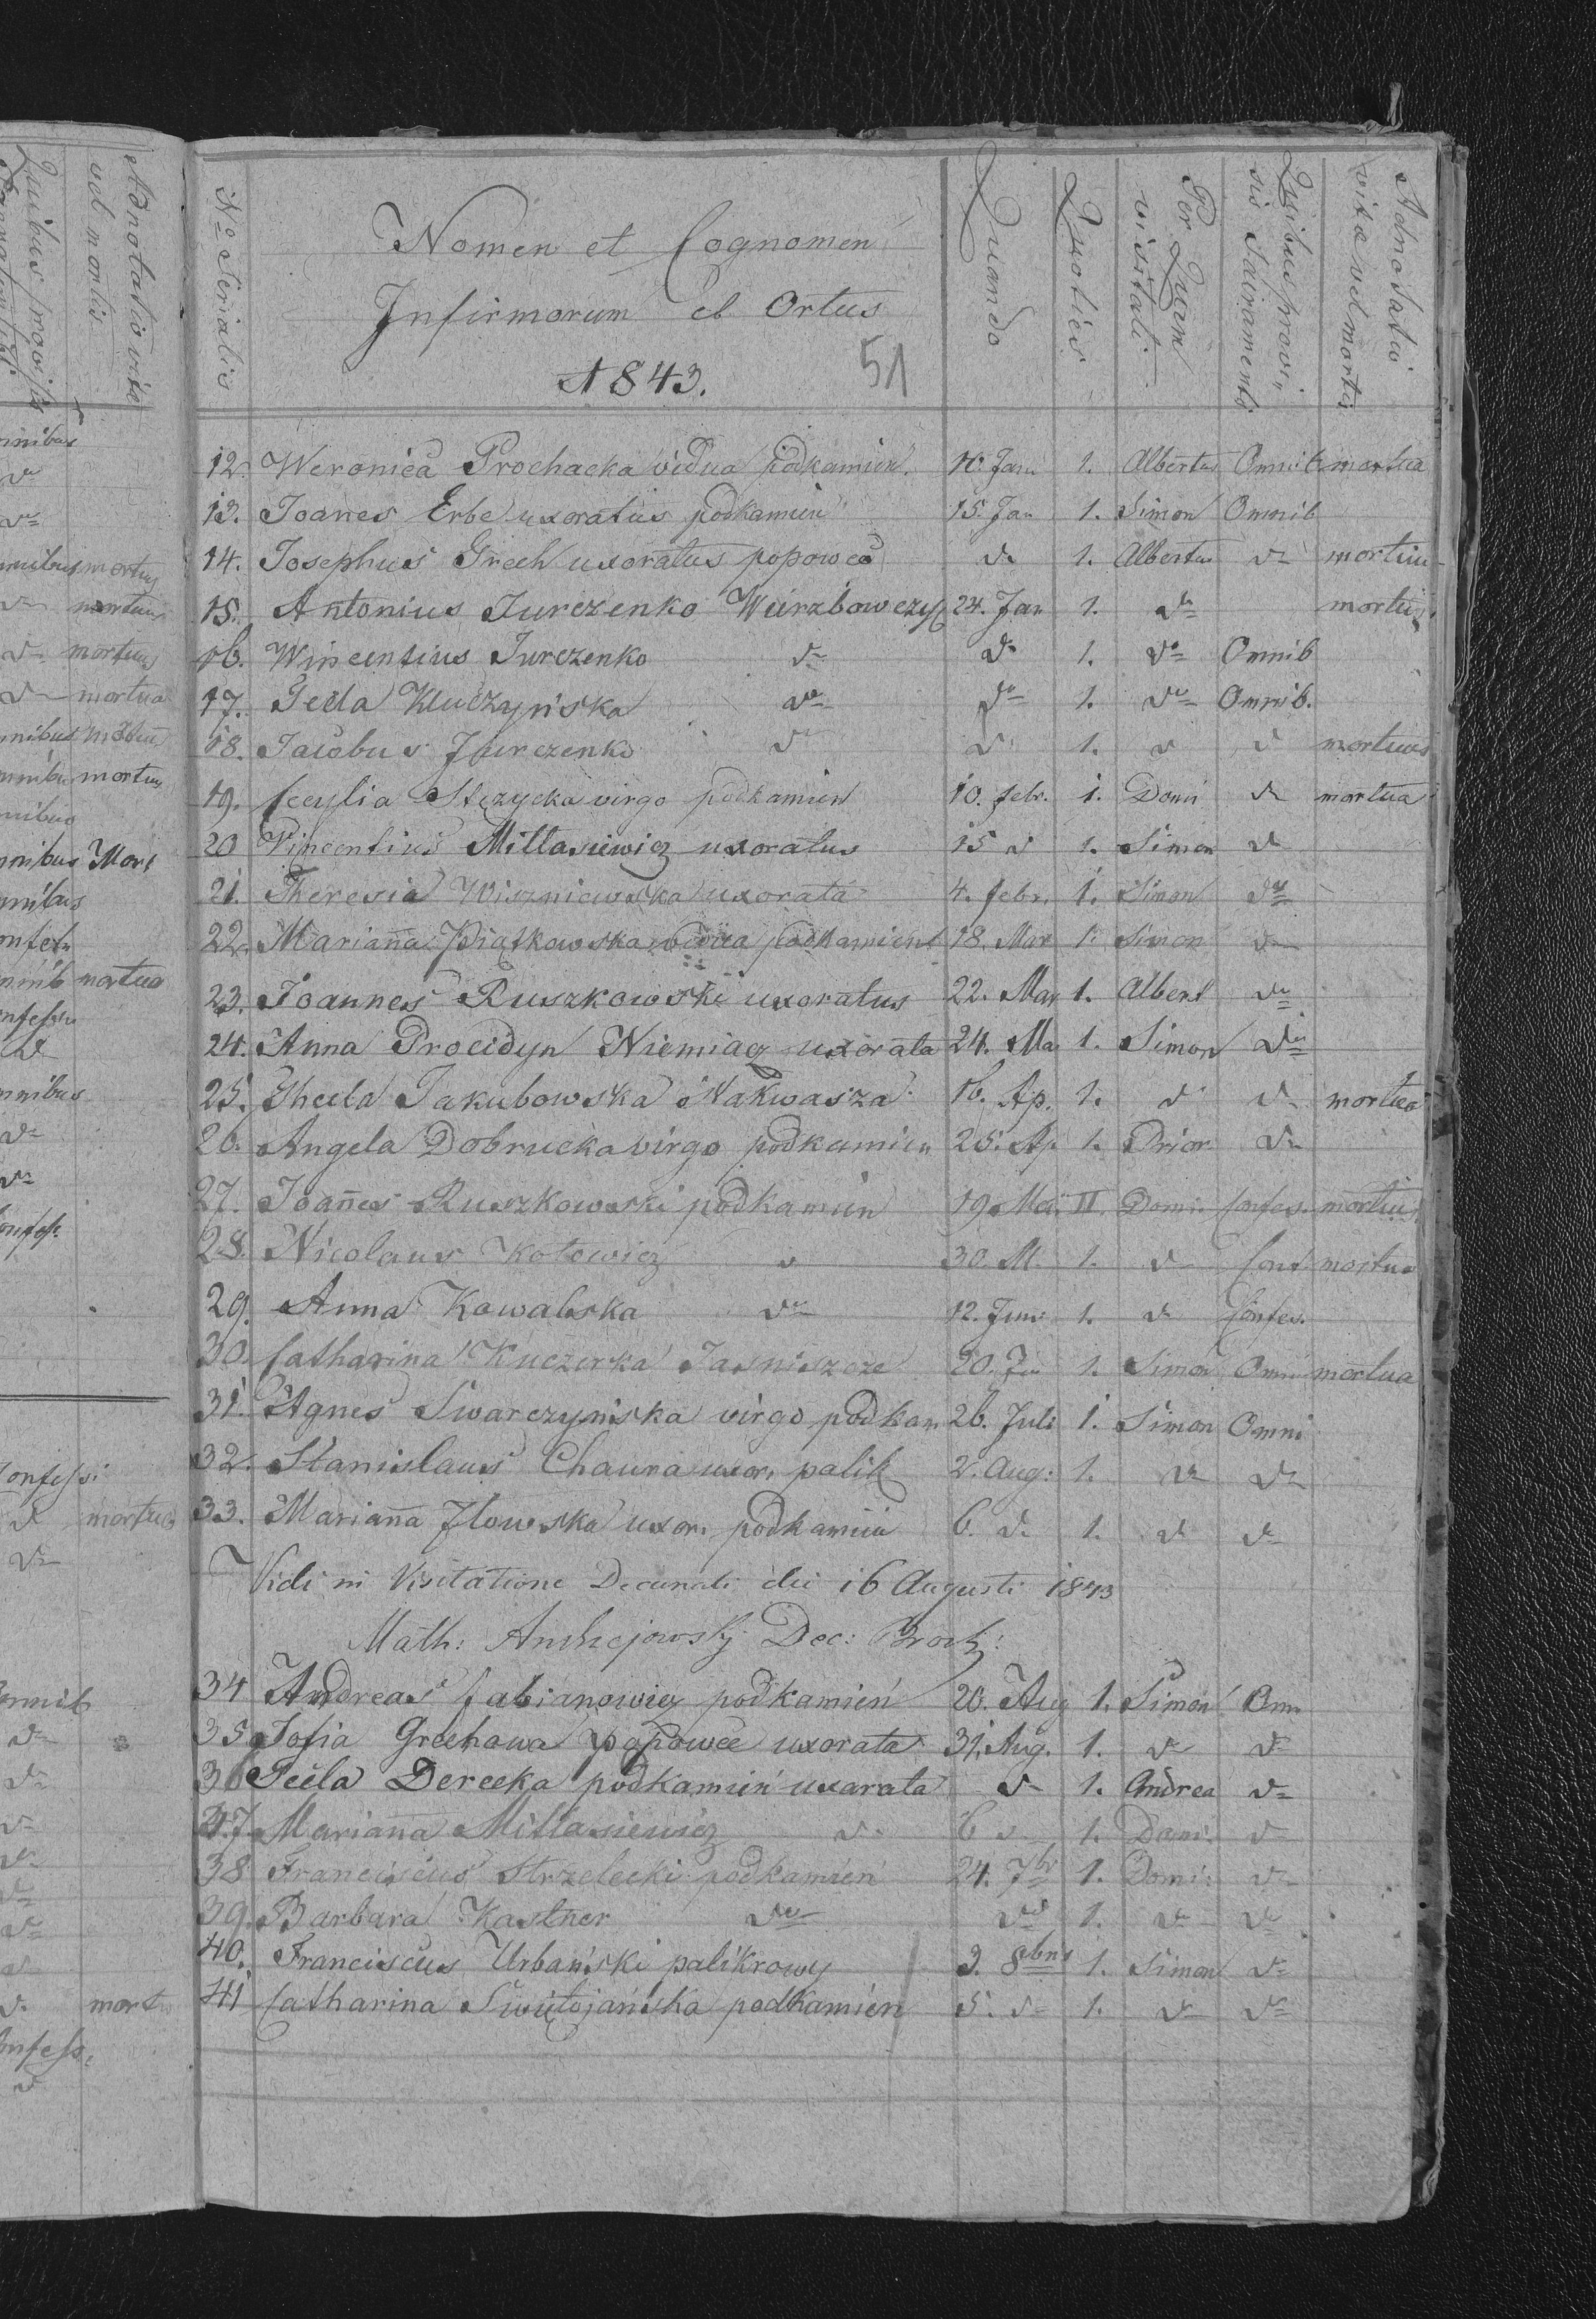 Adnotatio vitæ
vel mortis
Quibus provisi
nnibus
dto
dto
mnibus mortuus
dto mortuus
dto mortuus
dto mortua
nnibus mortuus
mnibus mortuus
nnibus
nnibus Mort
nnibus
onfess
mnib mortua
onfess
dto
mnibus
dto
dto
Confess.
Confessi
dto mortua
dto
Omnib
dto
dto
dto
dto
dto
dto
dto
dto mortu
onfess.
dto
No Serialis
Nomen et Cognomen
Infirmorum et Ortus
1843.
51
Quando
Quoties
Per Quem
visitati
Quibus provi„
sis Sairamentis
Adnotatio
vitæ vel mortis
12. Weronica Prochacka vidua podkamien. 10. Janu 1. Albertus Omnib mortua
13. Joanes Erbe uxoratus podkamien 15. Jan 1. Simon Omnib
14. Josephus Grech uxoratus popowce do 1. Albertus do mortuu
15. Antonius Jurczenko Wierzbowczyk 24. Jan 1. do mortuus
16. Wincentius Jurczenko do do 1. do Omnib
17. Tecla Kluczyńska do do 1. do Omnib.
18. Jacobus Jurczenko d d 1. d d mortuus
19. Cecylia Stęzycka virgo podkamien 10. febr. 1. Domi do mortua
20 Vincentius Mittasiewicz uxoratus 15 d 1. Simon do
21. Theresia Wiszniewska uxorata 4. febr. 1. Simon do
22. Marianna Piątkowska vidua podkamient 18. Mar 1. Simon do
23. Joannes Ruszkowski uxoratus 22. Mar 1. Albert do
24. Anna Procidyn Niemiacz uxorata 24. Ma 1. Simon do
25. Thecla Jakubowska Nakwasza 16. Ap. 1. d do mortua
26. Angela Dobrucka virgo podkamien 25. Ap. 1. Prior do
27. Joannes Ruszkowski podkamien 19 Mai II. Domi. Confess. mortuus
28. Nicolaus Kotowicz d 30. M. 1. do Conf mortuu
29. Anna Kowalska do 12. Juni 1. do Confes.
30. Catharina Kuczerka Jasniszcze 20. Ju 1. Simon Omni mortua
31. Agnes Swarczyniska virgo podkam 26. Juli 1. Simon Omni
32. Stanislaus Chaura uxor. palik 2. Aug: 1. do do
33. Marianna Jlowska uxor. podkamien 6. do 1. do do
Vidi in Visitatione Decanali die 16 Augusti 1843
Math: Andrzejowskj Dec: Brod:
34 Andreas Fabianowicz podkamień 20. Aug 1. Simon Omn
35 Sofia Grechowa popowce uxorata 31. Aug. 1. do do
36 Tecla Derecka podkamień uxorata do 1. Andrea do
37. Marianna Mittasiewicz do 6 d 1. Domi. do
38 Franciscus Strzelecki podkamień 24. 7br 1. Domi: do
39. Barbara Kastner do do 1. do do
40. Franciscus Urbański palikrowy 3. 8bris 1. Simon do
41 Catharina Swiętojańska podkamień 5. do 1. do do